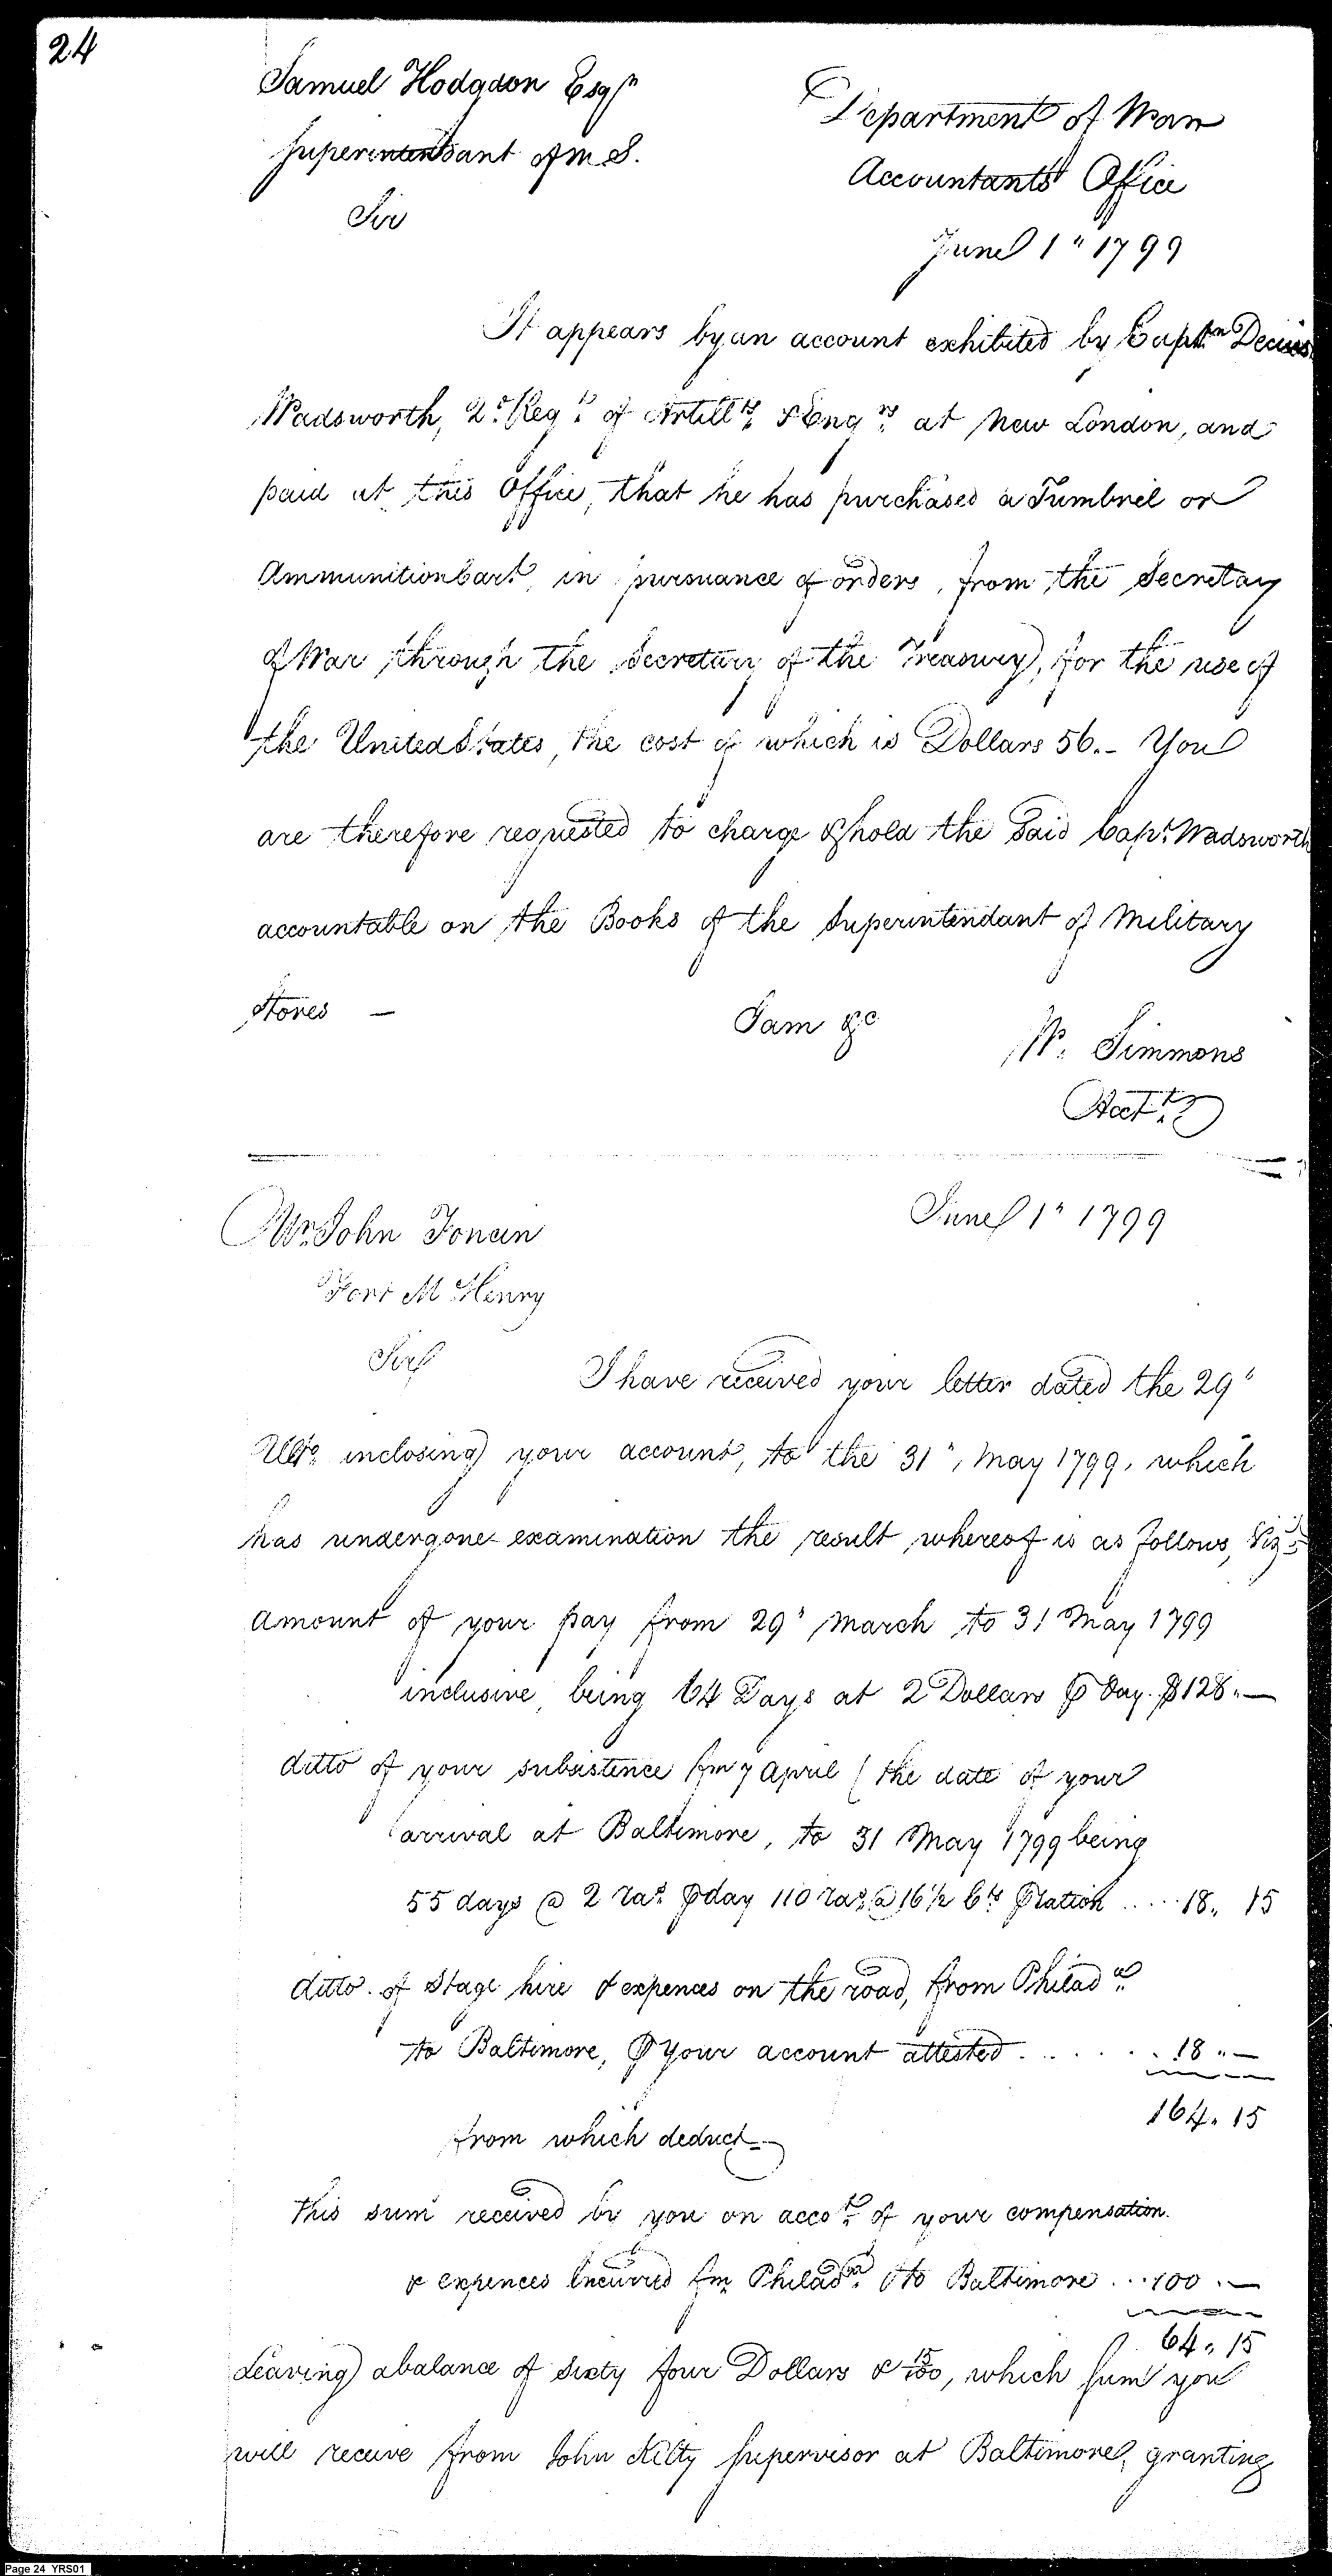 24
Samuel Hodgdon Esqr
Superintendant of M. S.
Department of War
Accountants Office
Sir
June 1" 1799
It appears by an account exhibited by Captn Decius
Wadsworth, 2d Regt of Artillry & Engrs at New London, and
paid at this Office, that he has purchased a Tumbril or
Ammunition Cart, in pursuance of orders, from the Secretary
of War through the Secretary of the Treasury, for the use of
the United States, the cost of which is Dollars 56.- You
are therefore requested to charge & hold the said Capt. Wadsworth
accountable on the Books of the Superintendant of Military
Stores —
I am &c
W. Simmons
Acctt
Mr. John Foncin
June 1" 1799
Fort M Henry
Sir
I have received your letter dated the 29"
Ulto inclosing your account, to the 31", May 1799, which
has undergone examination the result whereof is as follows, Viz
amount of your pay from 29" March to 31 May 1799
inclusive, being 64 Days at 2 Dollars ⅌ Day. $128.—
ditto of your subsistence fm 7 April (the date of your
arrival at Baltimore, to 31 May 1799 being
55 days @ 2 ras. ⅌ day 110 ras. @ 16 1/2 Cts ⅌ ration .... 18.. 15
ditto. of Stage hire & expences on the road, from Philada
to Baltimore, ⅌ Your account attested . . . . . . 18 ..—
164. 15
from which deduct
This sum received by you on accot of your compensation.
& expences incurred fm Philada to Baltimore ... 100 .—
64. 15
Leaving a balance of Sixty four Dollars & 15/100, which sum you
will receive from John Kilty Supervisor at Baltimore, granting
Page 24 YRS01